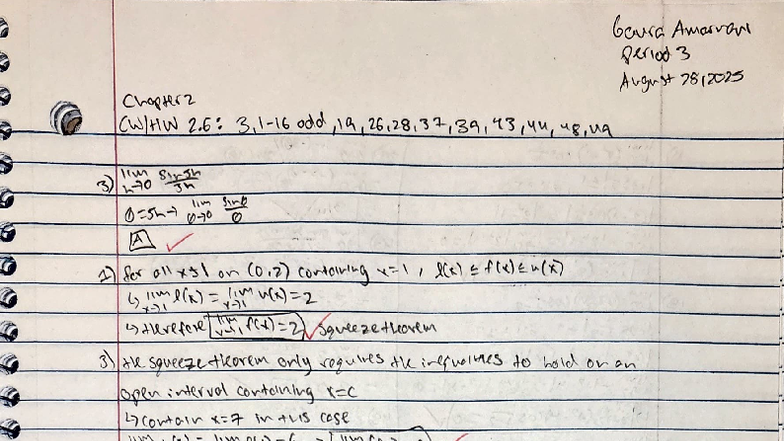 Gaura Amarnani
Period 3
August 28, 2025
Chapter 2
CW/HW 2.6: 3, 1-16 odd, 19, 26, 28, 37, 39, 43, 44, 48, 49
3) lim h→0 sin5h/3h
θ=5h→ lim θ→0 sinθ/θ
A
1) for all x≠1 on (0,2) containing x=1, l(x) ≤ f(x) ≤ u(x)
↳ lim x→1 l(x) = lim x→1 u(x) = 2
↳ therefore lim x→1 f(x) = 2, squeeze theorem
3) the squeeze theorem only requires the inequalities to hold on an
open interval containing x=c
↳ contain x=7 in this case